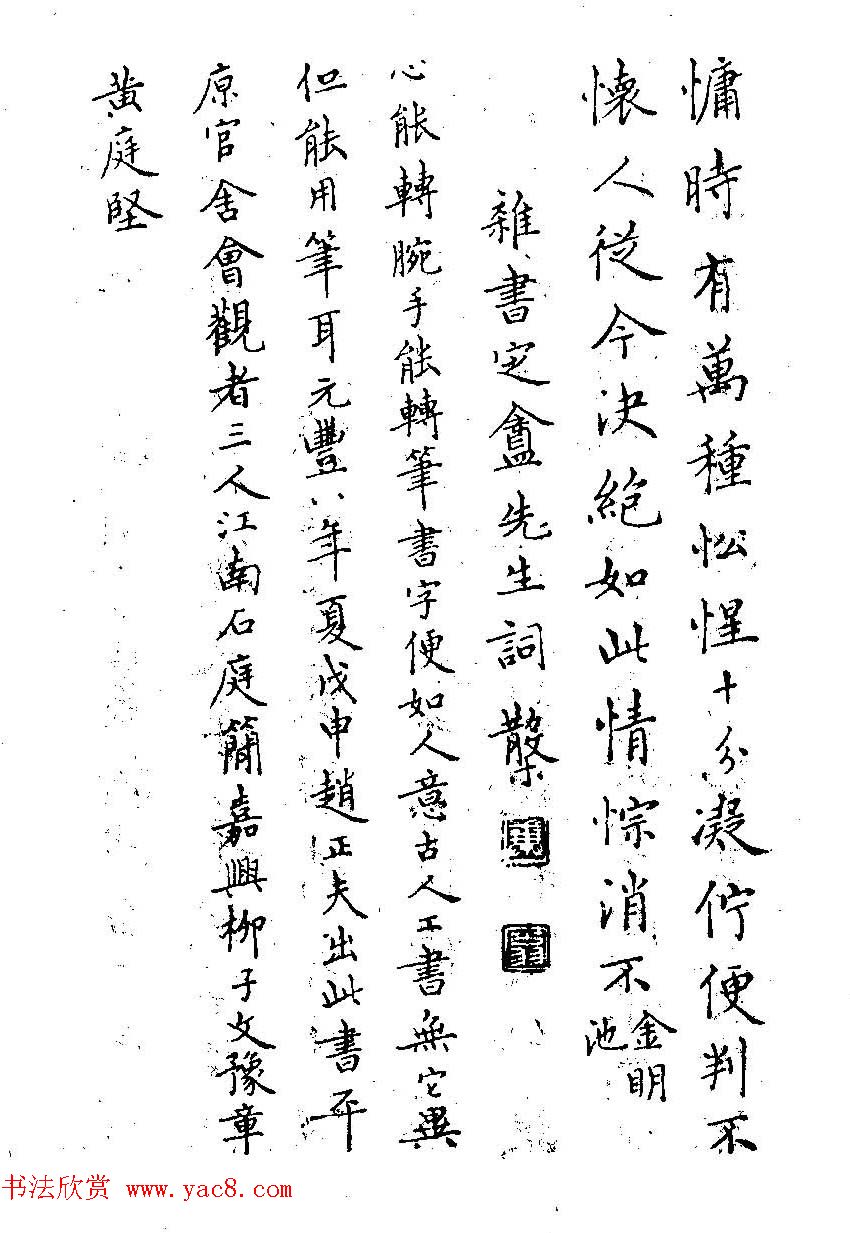 慵時有萬種惺忪十分凝佇便判不
懷人從今決絕如此情悰消不金明池
雜書定盦先生詞
心能轉腕手能轉筆書字便如人意古人工書無它異
但能用筆耳元豐八年夏戊申趙正夫出此書平
原官舍會觀者三人江南石庭簡嘉興柳子文豫章
黃庭堅
书法欣赏 www.yac8.com